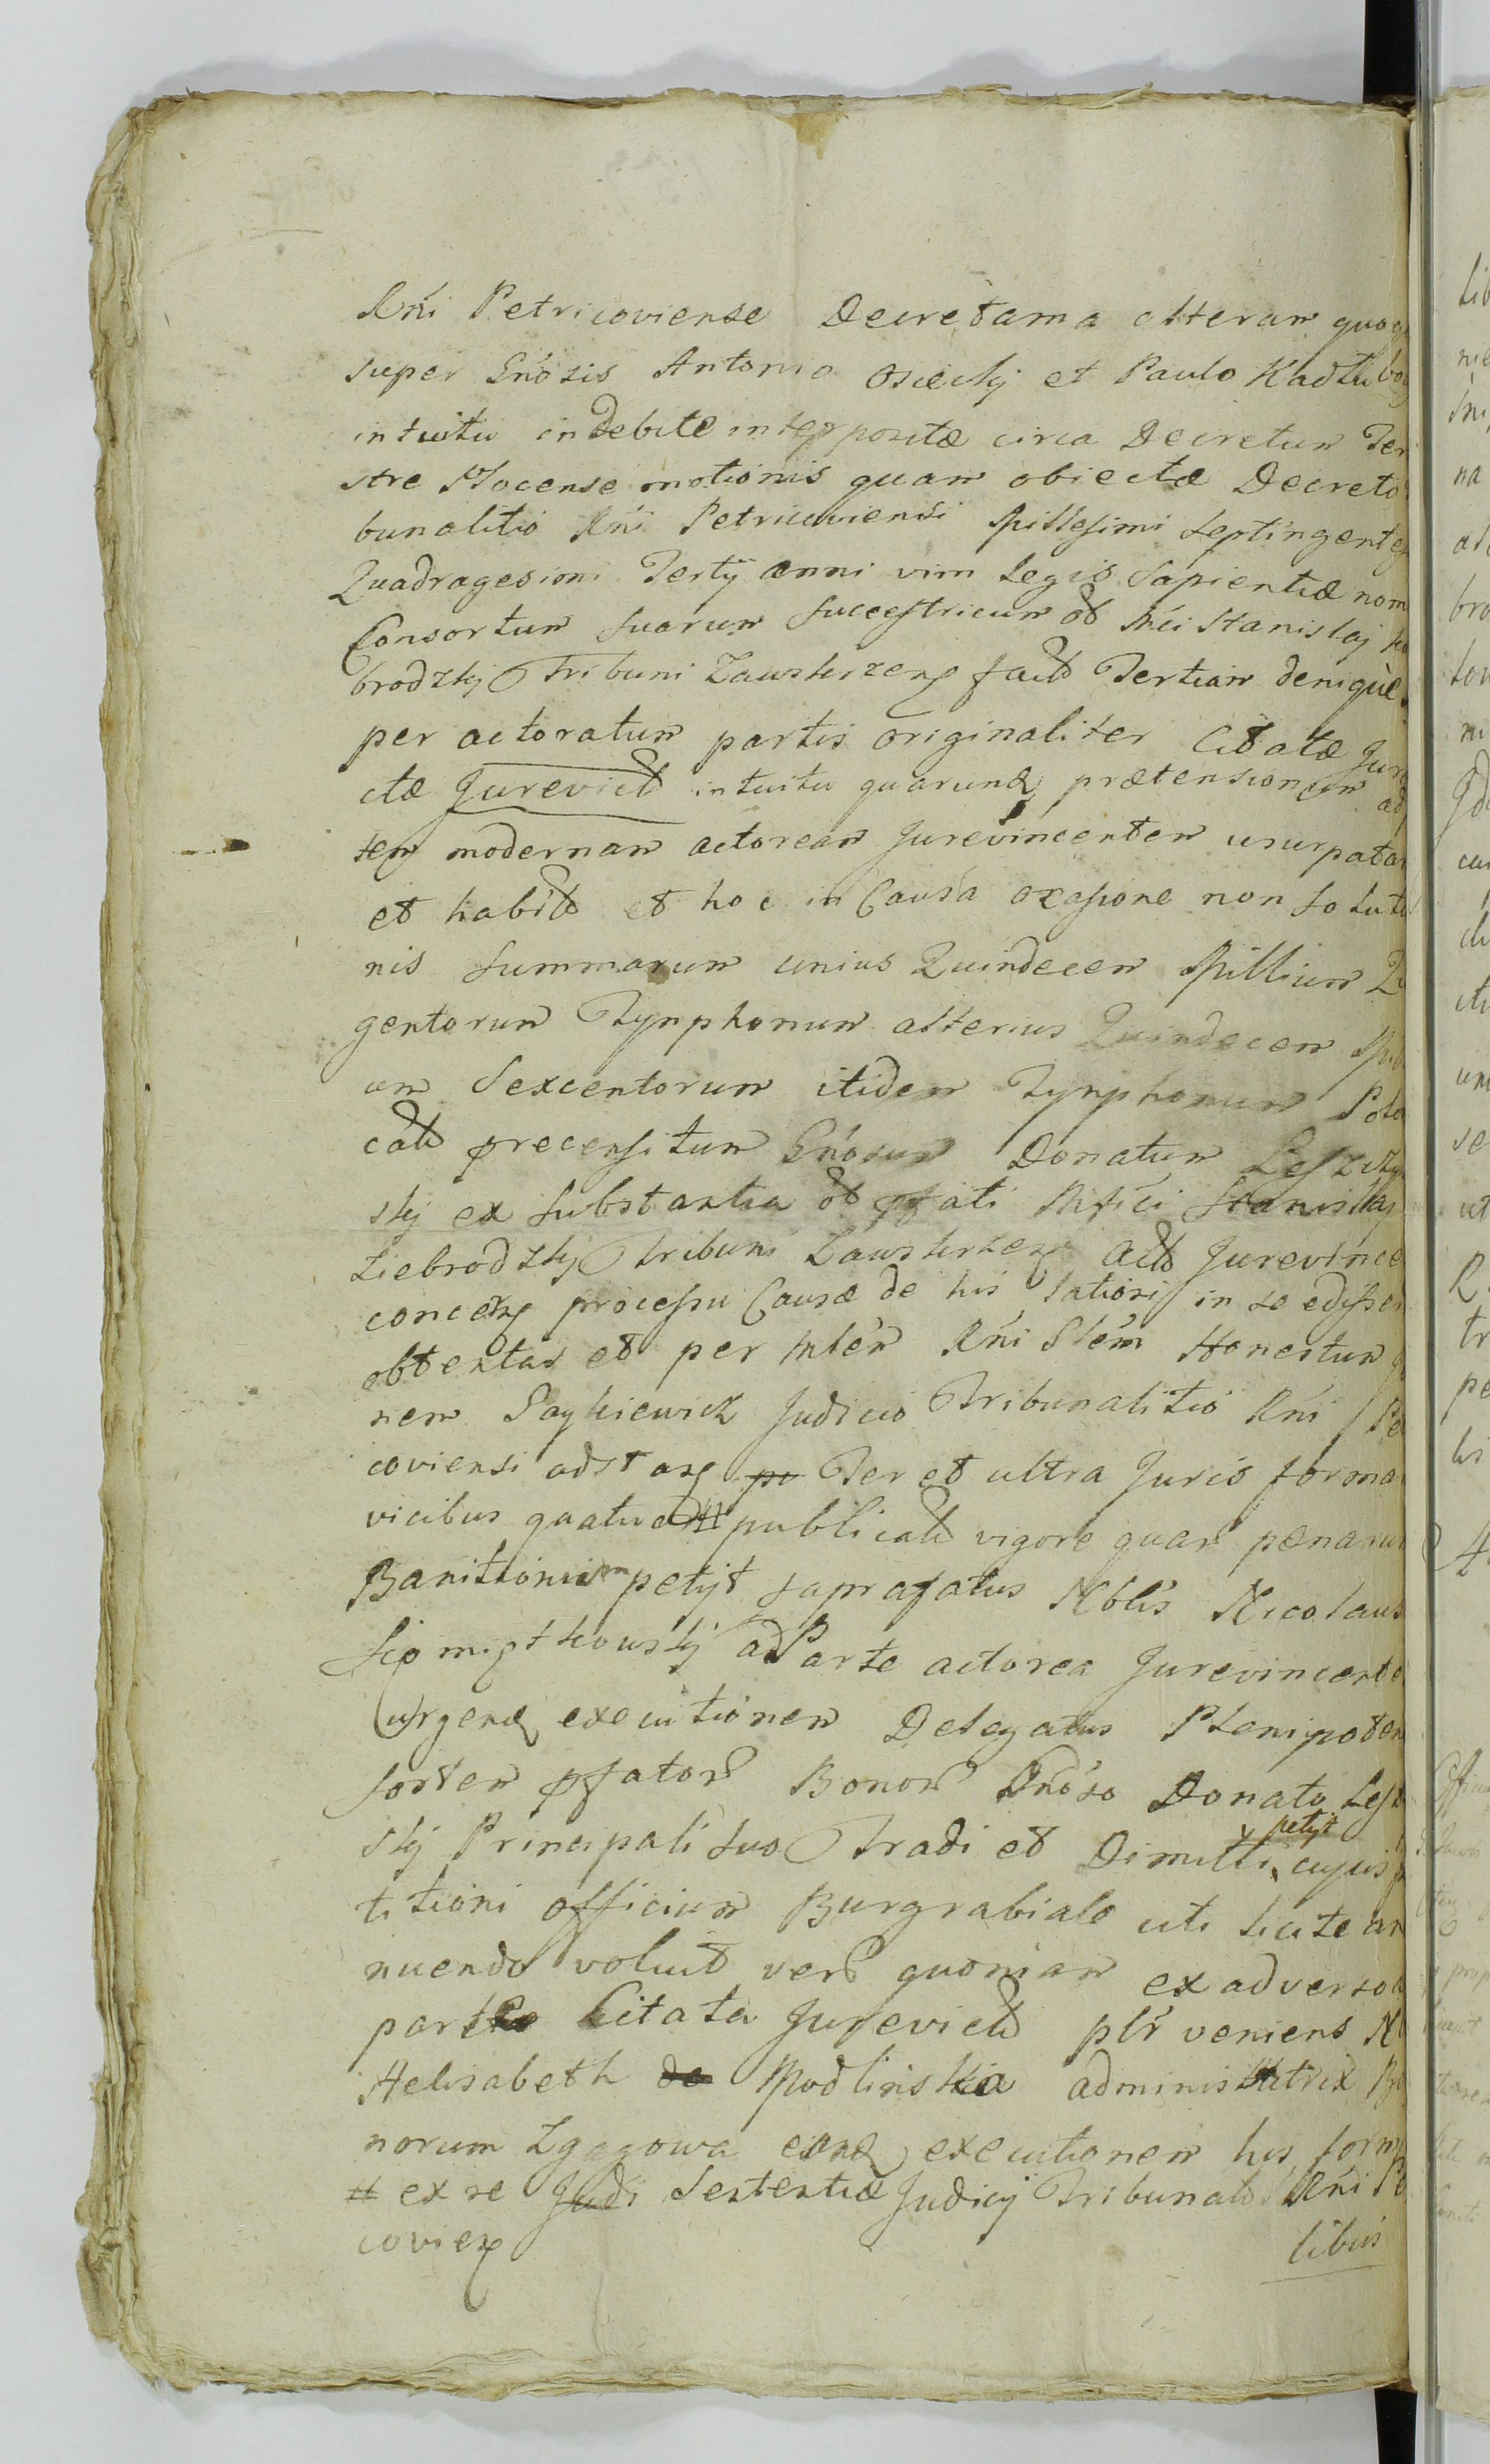 Rńi Petricoviense Decretama alteram quoq
super Gńosis Antonio Osiecky et Paulo Kadłubo
intuitu indebitæ interpositæ circa Decretum Ter
stre Plocense motionis quam obiectæ Decreto
bunalitio Rńi Petricoviensi Millesimi Septingente
Quadragesimi Tertij anni vim Legis Sapientiæ nom
Consortum suarum Successtricum ot Mći Stanislaj
brodzkij Tribuni Zawskrzen fact Tertiam deniquè
per actoratum partis originaliter Citatæ Jur
ctæ Jurevict intuitu quarund prætensionem ad
tem modernam actoream Jurevincentem usurpata
et habit et hoc in Causa oxasione non solutio
nis Summarum unius Quindecem Millium
gentorum Tynphonum alterius Quindecem Mil
um Sexcentorum itidem Tynphonum Polo
cat precensitum Gńosum Donatum Leszczy
skj ex Substantia ot pfati Mfići Stanislaj
Ziebrodzkij Tribuni Zawskrzen act Jurevince
concern processu Causæ de his latioris in se edisser
obtentas et per Mlém Rńi Glém Honestum
nem Paykiewicz Judicio Tribunalitio Rńi Pe
coviensi adstan pu Ter et ultra Juris forma
vicibus quatuor # publicat vigore quar pænarum
Banitionum petijt saprafatus Nblis Nicolaus
ad Parte actorea Jurevincente
urgend executionem Delegatus Plenipoten
sortem pfator Bonor Gńoso Donato Lesz
skj Principali suo Tradi et Dimitti petijt cujus
titioni officium Burgrabiale uti licite an
nuendo voluit verò quoniam ex adverso
parte Citata Jurevict plr veniens
Helisabeth de Modlinskia administratrix Bo
norum Zgagowa eand executionem his form
# ex re Judi Sententiæ Judicij Tribunalis Rńi Pe
covien
libus